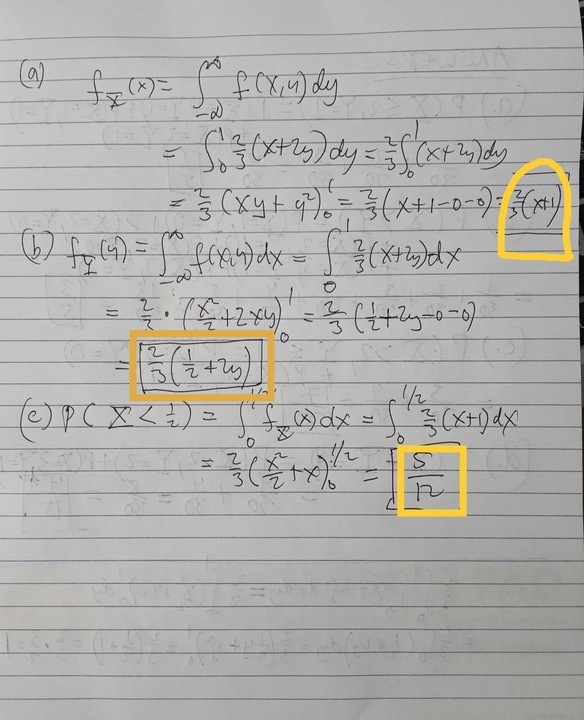 (a) f_X(x) = ∫_{-∞}^{∞} f(x,y) dy
= ∫_0^1 2/3 (x+2y) dy = 2/3 ∫_0^1 (x+2y) dy
= 2/3 (xy + y²)_0^1 = 2/3 (x+1-0-0) = 2/3 (x+1)
(b) f_Y(y) = ∫_{-∞}^{∞} f(x,y) dx = ∫_0^1 2/3 (x+2y) dx
= 2/3 · (x²/2 + 2xy)_0^1 = 2/3 (1/2 + 2y - 0 - 0)
= 2/3 (1/2 + 2y)
(c) P(X < 1/2) = ∫_0^{1/2} f_X(x) dx = ∫_0^{1/2} 2/3 (x+1) dx
= 2/3 (x²/2 + x)_0^{1/2} = 5/12